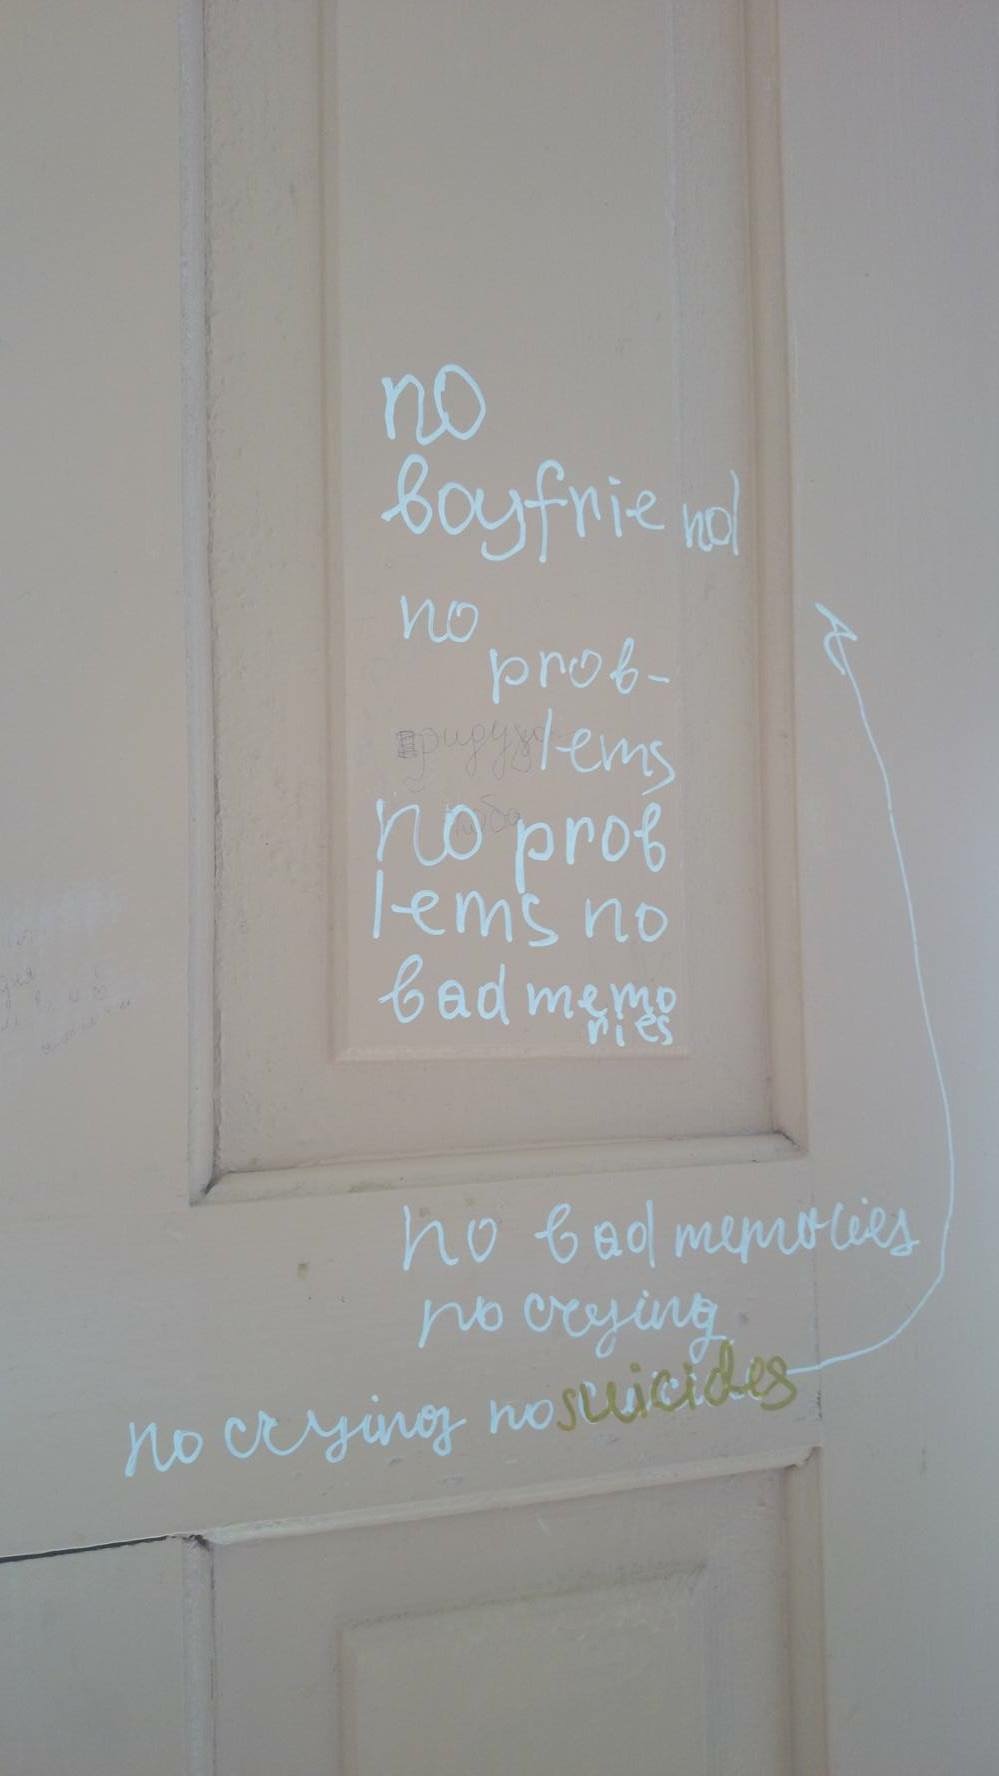 no
boyfriend
no
prob-
lems
no prob
lems no
bad memo
ries
no bad memories
no crying
no crying no suicides